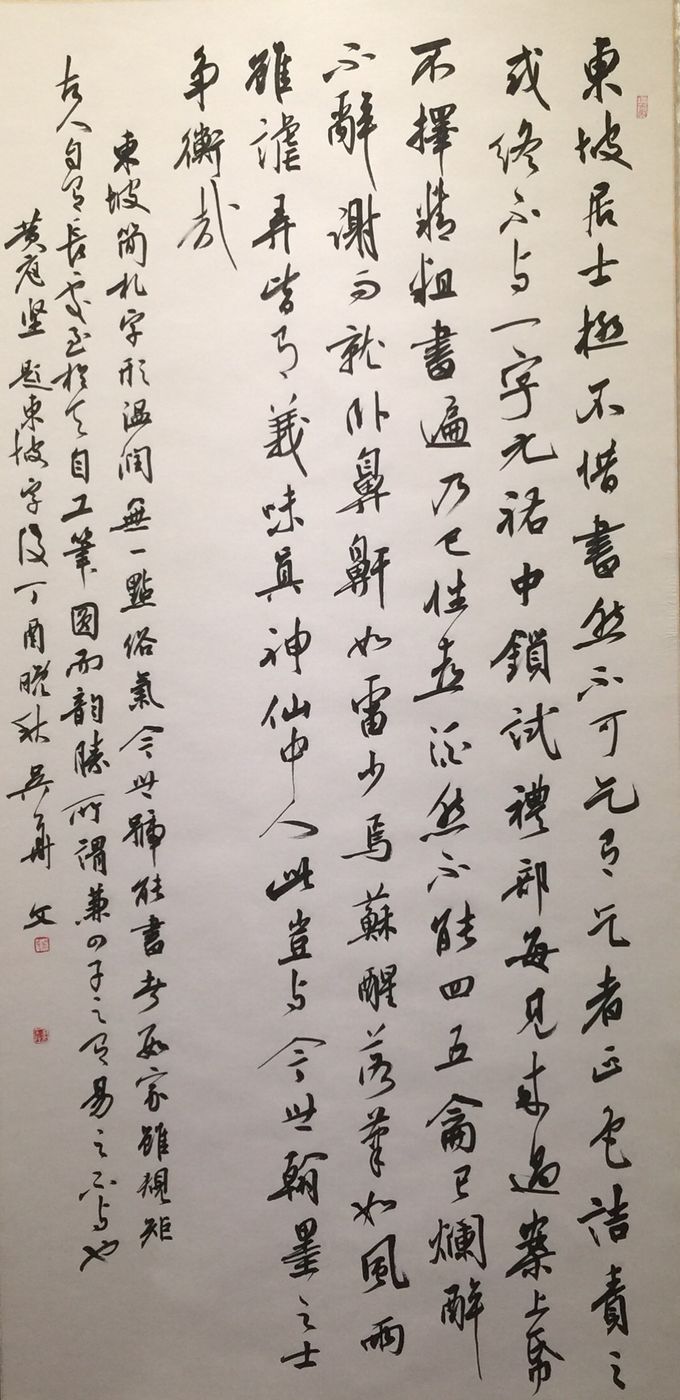 東坡居士極不惜書然不可乞有乞者正色詰責之
或終不与一字元祐中鎖試禮部每見来過案上帋
不擇精粗書遍乃已性喜酒然不能四五龠已爛醉
不辭謝而就卧鼻鼾如雷少焉蘇醒落筆如風雨
雖謔弄皆有義味真神仙中人此豈与今世翰墨之士
争衡哉
東坡簡札字形温潤無一點俗氣今世號能書者數家雖規矩
古人自有長處至於天自工筆圆而韵勝所謂兼四子之有易之不与也
黄庭坚题東坡字後丁酉晚秋吴